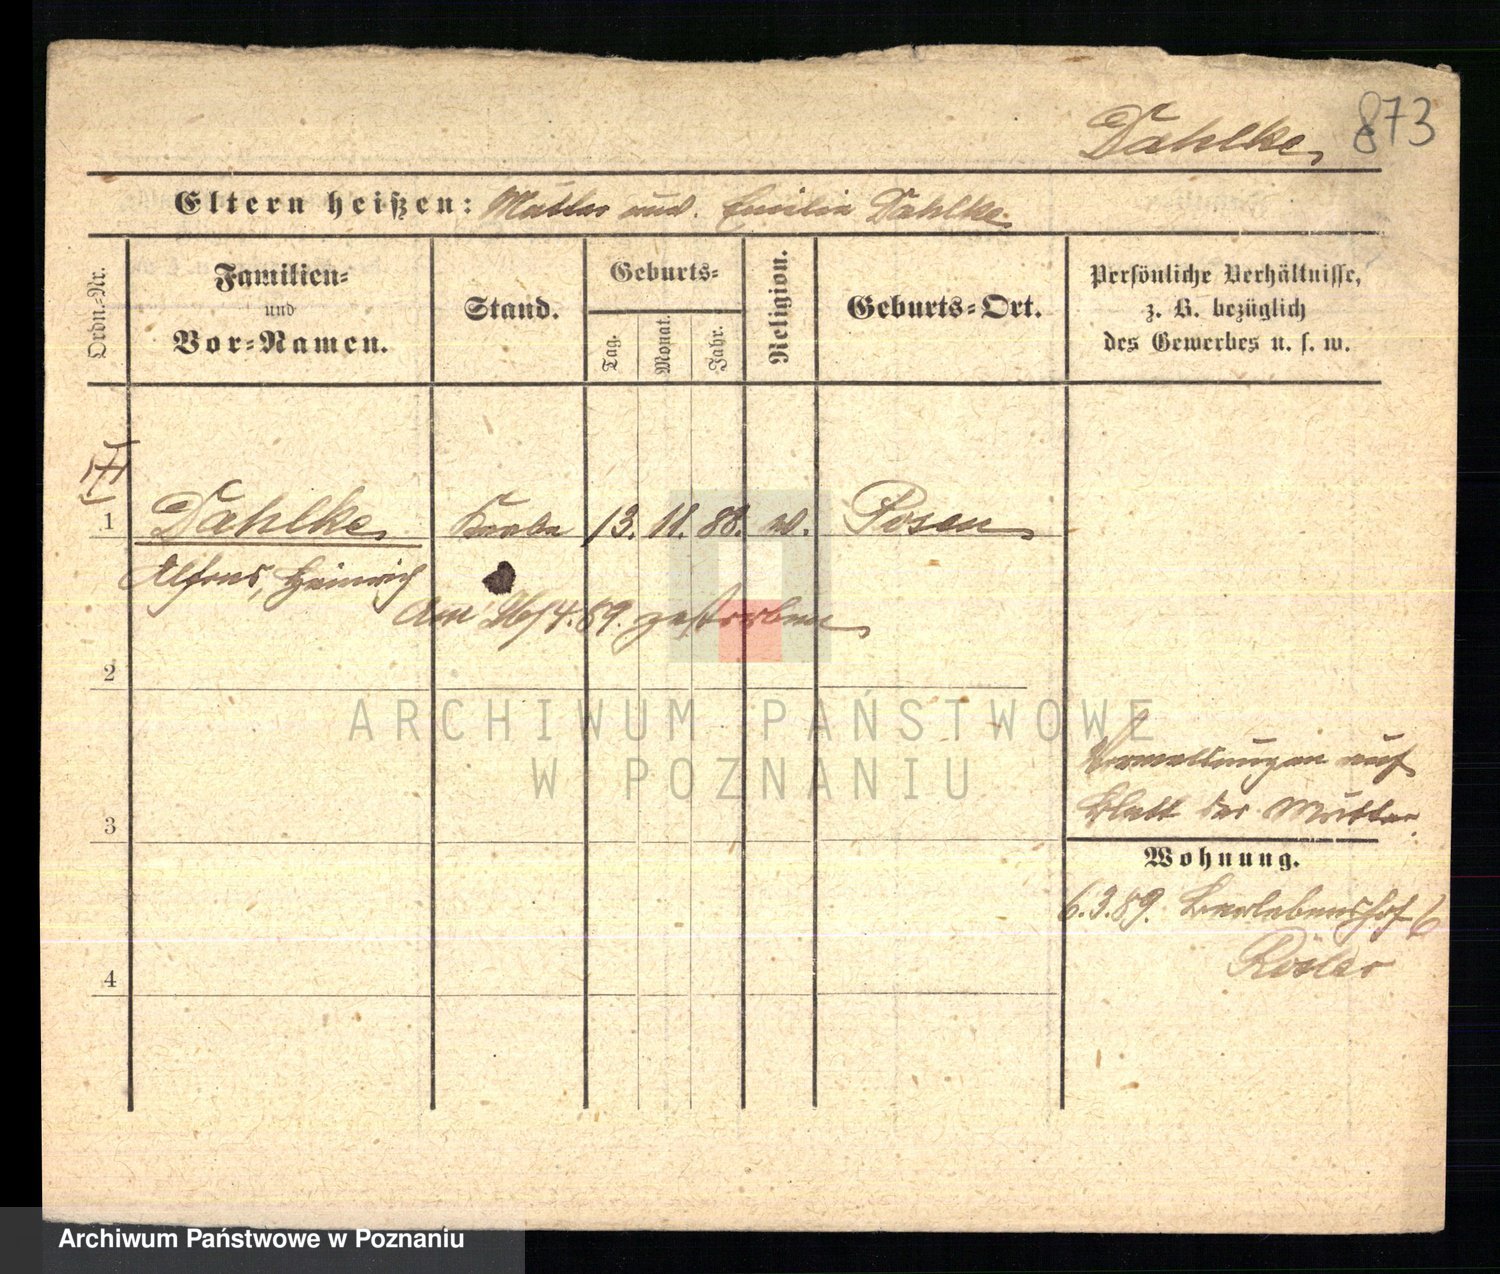 Dahlke. 873
Eltern heißen: Mutter unv. Emilie Dahlke.
Ordn.-Nr.
Familien-
und
Vor-Namen.
Stand.
Geburts-
Tag.
Monat.
Jahr.
Religion.
Geburts-Ort.
Persönliche Verhältnisse,
z. B. bezüglich
des Gewerbes u. s. w.
1 Dahlke Knabe 13. 11. 88. Posen
Alfons, Heinrich
Am 26/4. 89. gestorben
2
ARCHIWUM PAŃSTWOWE
W POZNANIU
auf
Blatt der Mutter.
3
Wohnung.
6.3.89. 6
4
Archiwum Państwowe w Poznaniu